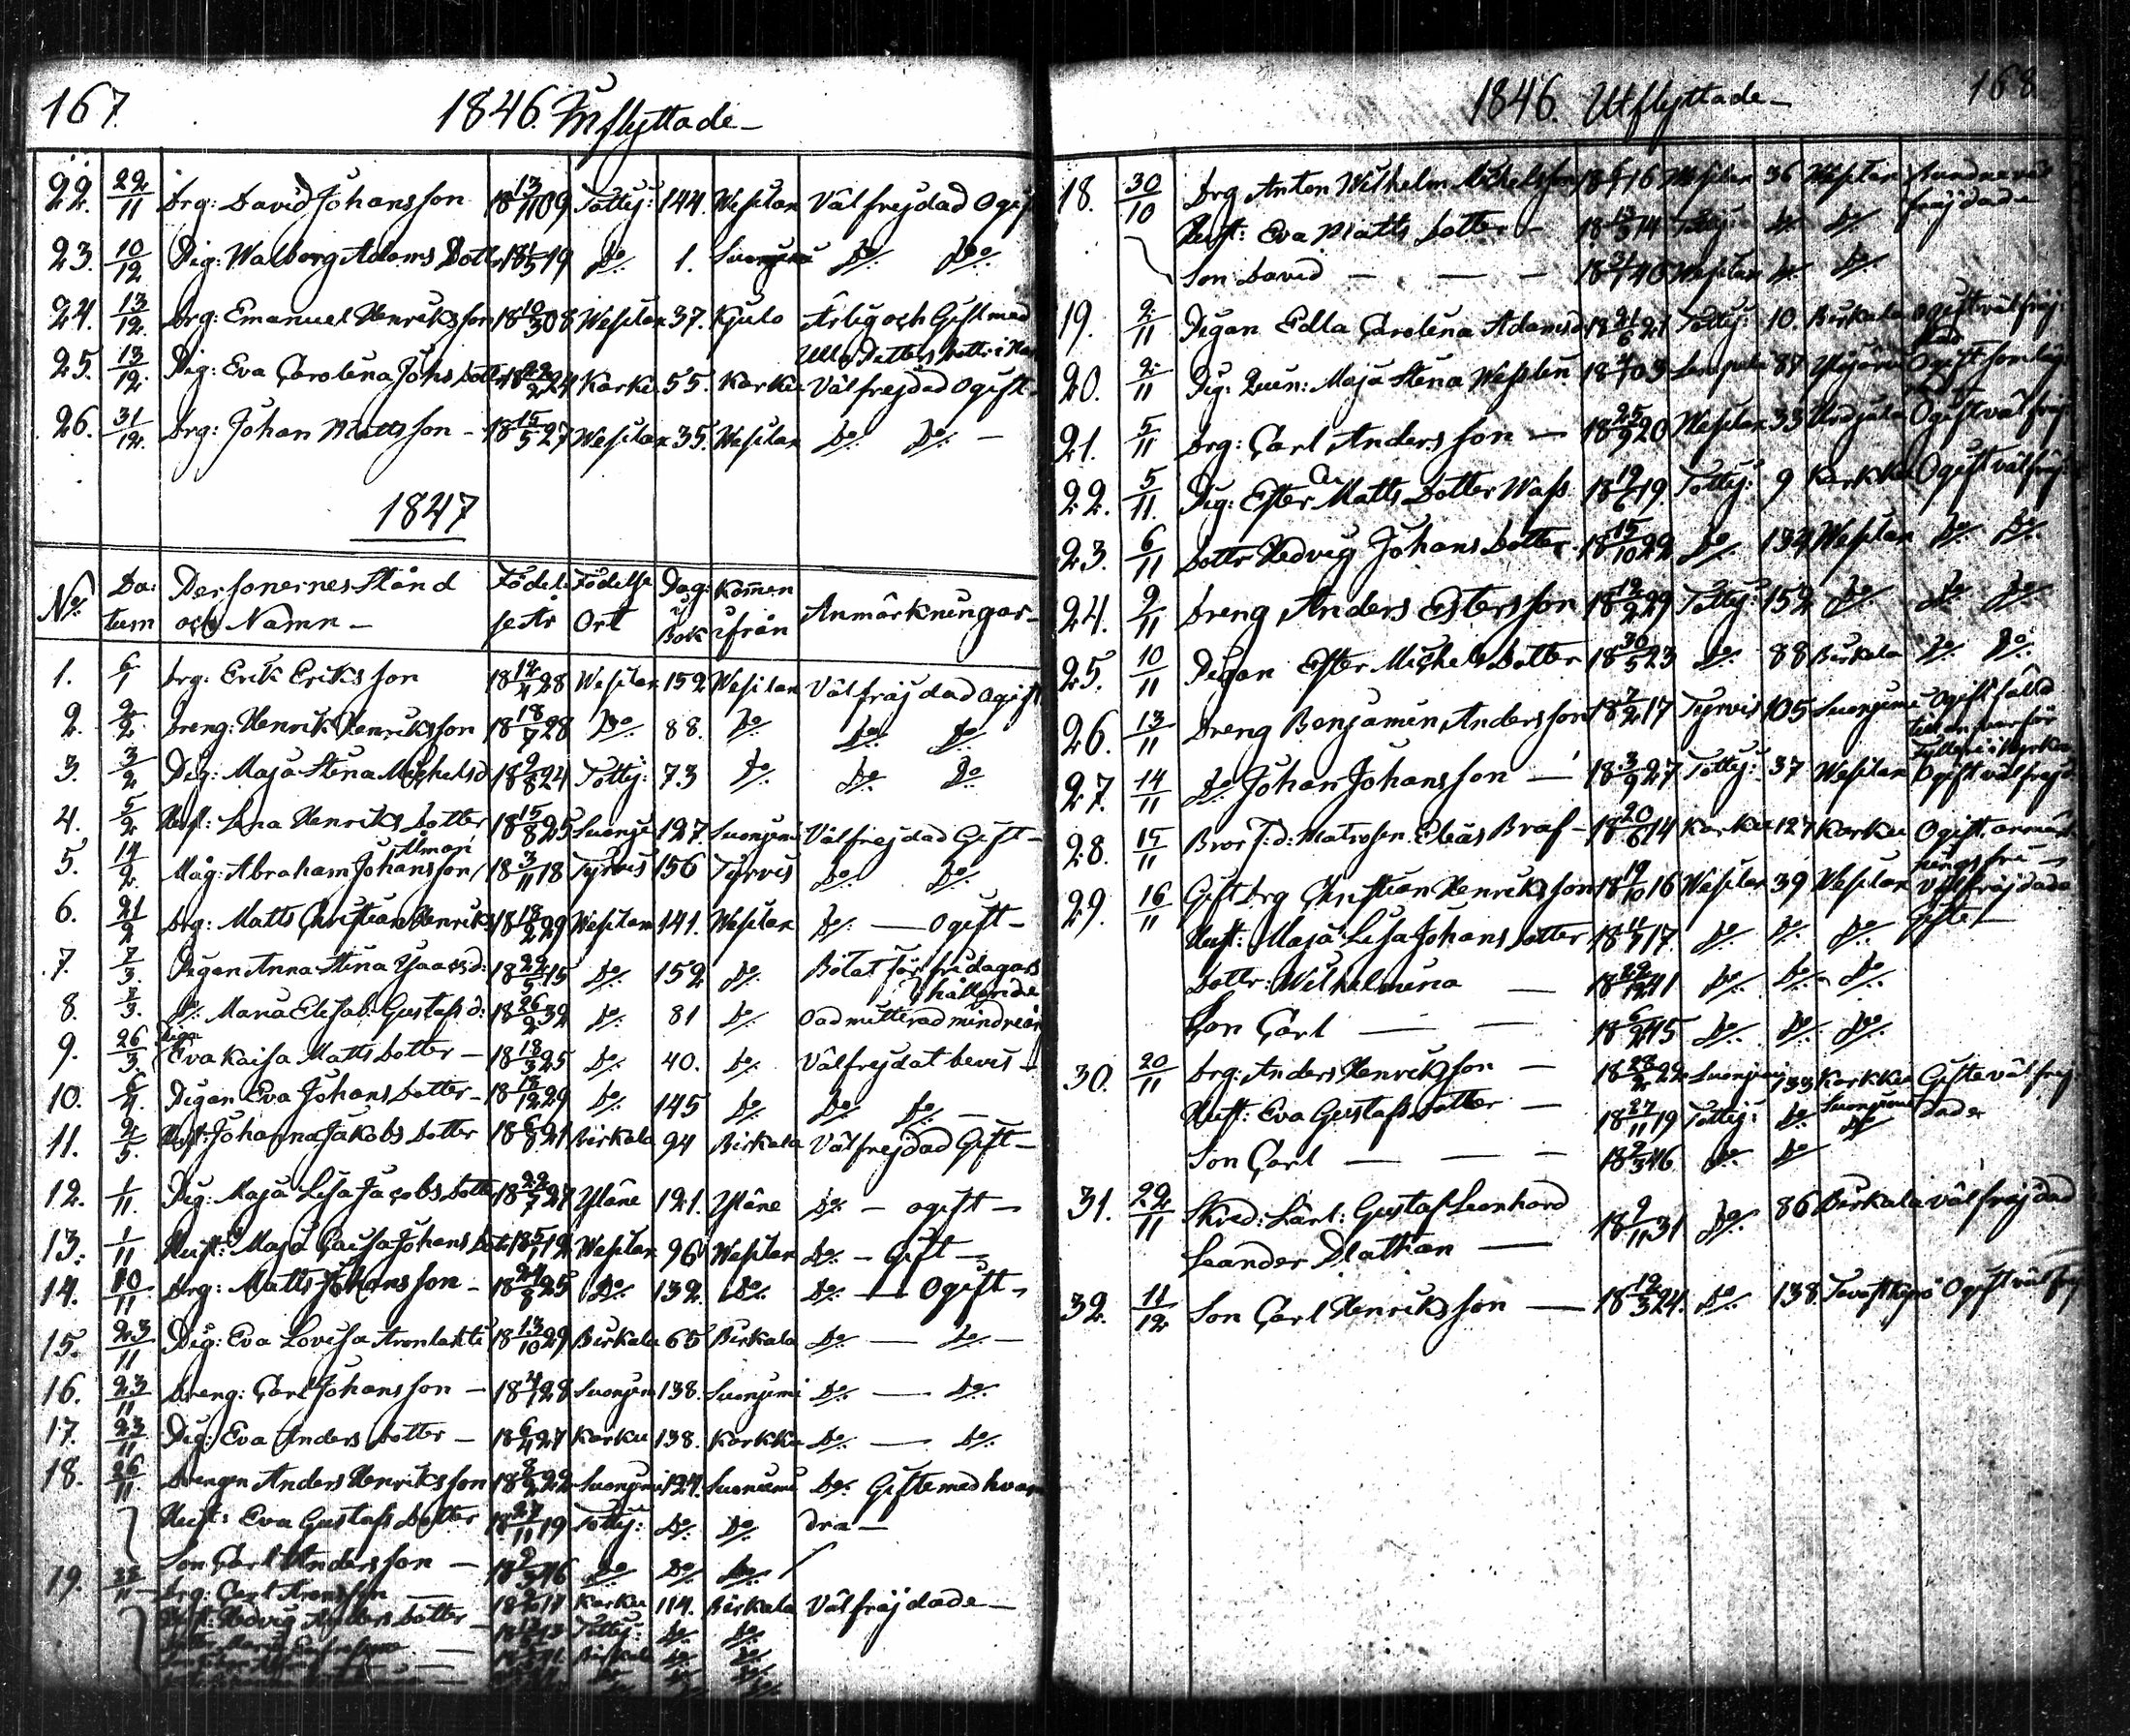 167.
1846. Inflyttade
22. 22/11 Drg: David Johansson 18 13/11 09 Tottij: 144. Wesilax Välfrejdad Ogift
23. 10/12 Pig: Walborg Adams Dotter 19 Do 1. Suonjemi Do Do
24. 13/12 Drg: Emanuel Henriksson 18 10/3 08 Wesilax 37. Kjulo Ärlig och Gift med
Ulla Petters Dottr i
25. 13/12 Pig: Eva Carolina Johs Dottr 18 22/2 24 Karku 55. Karku Välfrejdad Ogift
26. 31/12 Drg: Johan Mattsson 18 15/5 27 Wesilax 35. Wesilax Do Do
1847
No Da: Personernes Stånd Födel: Födelse Pag: Kommen Anmärkningar
tum och Namn se År Ort i Bok ifrån
1. 6/1 Drg: Erik Eriksson 18 12/4 28 Wesilax 152 Wesilax Välfräjdad Ogift
2. 2/2 Dreng: Henrik Henriksson 18 18/7 28 Do 88. Do Do Do
3. 3/2 Pig: Maja Stina Michelsd 18 2/8 24 Tottij: 73 Do Do Do
4. 5/2 Hust: Lena Henriks Dotter 18 15/8 25 Suonje 127 Suonjemi Välfrejdad Gift
5. 14/2 Måg: Abraham Johansson Almari 18 3/11 18 Tyrvis 156 Tyrvis Do Do
6. 21/2 Drg: Matts Christian Henriks 18 18/2 29 Wesilax 141. Wesilax Do Ogift
7. 7/3. Pigan Anna Stina Isaacsd: 15 Do 152 Do Bötat för fridagars
hållande
8. 7/3. Do Maria Elisab: Gustafsd: 18 26/9 32 Do 81 Do Oadmitterad minderår
9. 26/3. Piga Eva Kaisa Matts Dotter 18 18/3 25 Do 40. Do Välfrejdat bevis
10. 6/4. Pigan Eva Johans Dotter 18 18/12 29 Do 145 Do Do Do
11. 2/5. Hust: Johanna Jakobs Dotter 18 6/8 21 Birkala 94 Birkala Välfrejdad Gift
12. 1/11. Pig: Maja Lisa Jacobs Dotter 18 22/7 27 Yläne 121. Yläne Do ogift
13. 1/11 Hust: Maja Caisa Johans Dotr 12 Wesilax 96 Wesilax Do Gift
14. 10/11. Drg: Matts Johansson 18 24/8 25 Do 132. Do Do Ogift
15. 23/11 Pig: Eva Lovisa Aronlahti 18 13/10 29 Birkala 65 Birkala Do Do
16. 23/11 Dreng: Carl Johansson 18 4/1 28 Suonjem 138. Suonjemi Do Do
17. 23/11. Pig: Eva Anders Dotter 18 6/4 27 Karku 138. Karkku Do Do
18. 26/11. Drengen Anders Henriksson 22 Suonjemi 124. Suoniemi Do Gifte med hvaran
Hust: Eva Gustafs Dotter 18 27/11 19 Tottij: Do Do dra
Son Carl Andersson 18 2/3 46 Do Do Do
19. Drg: Carl Aronsson 17 Karku 114. Birkala Välfräjdade
Hust: Hedvig Anders Dotter Tottij: Do Do
Birkala Do Do
1846. Utflyttade
168
18. 30/10 Drg Anton Wilhelm Michelsson 16 Wesilax 36 Wesilax
fräjdade
Hust: Eva Matts Dotter 14 Tottij: Do Do
Son David 46 Wesilax Do Do
19. 2/11 Pigan Edla Carolina Adamsd 18 21/6 21 Tottij: 10. Birkala ogift välfräj:
dad
20. 2/11 Pig: Maja Stina Weslin 03 Lempala 87 Ogift
21. 5/11 Drg: Carl Andersson 18 25/9 20 Wesilax 33 Urdjala Ogift välfräj
22. 5/11. Pig: Ester Matts Dotter Wass 19 Tottij: 9 Karkku Ogift välfräj:
23. 6/11 Dottr Hedvig Johans Dotter 18 15/10 22 Do 132 Wesilax Do Do
24. 9/11 Dreng Anders Estersson 29 Tottij: 152 Do Do Do
25. 10/11 Pigan Ester Michels Dotter 18 30/5 23 Do 88 Birkala Do Do
26. 13/11 Dreng Benjamin Andersson 18 7/2 17 Tyrvis 105 Suonjemi Ogift fälld
till ansvar för
fylleri i kyrka
27. 14/11 Do Johan Johansson 18 3/9 27 Tottij: 37 Wesilax Ogift välfrejd
28. 15/11 Bror f: d: Matrosen Elias Braf 18 20/6 14 Karku 127 Karku Ogift anmärk
ningsfri
29. 16/11 Gift Drg Christian Henriksson 18 19/10 16 Wesilax 39 Wesilax Välfräjdade
Gifte
Hust: Maja Lisa Johans Dotter 17. Do Do Do
Dottr: Wilhelmina 41 Do Do Do
Son Carl 18 6/2 45 Do Do Do
30. 20/11 Drg: Anders Henriksson 22 Suonjemi 133 Karkku Gifte välfrej
Suonjemi dade
Hust: Eva Gustafs Dotter 18 27/11 19 Tottij: Do Do
Son Carl 18 2/3 46 Do Do
31. 22/11 Skred: Lärl: Gustaf Leonhard
Leander Plathan 18 9/11 31 Do 86 Birkala välfräjdad
32. 11/12 Son Carl Henriksson 18 12/3 24. Do 138. Tavastkyrö Ogift välfrej